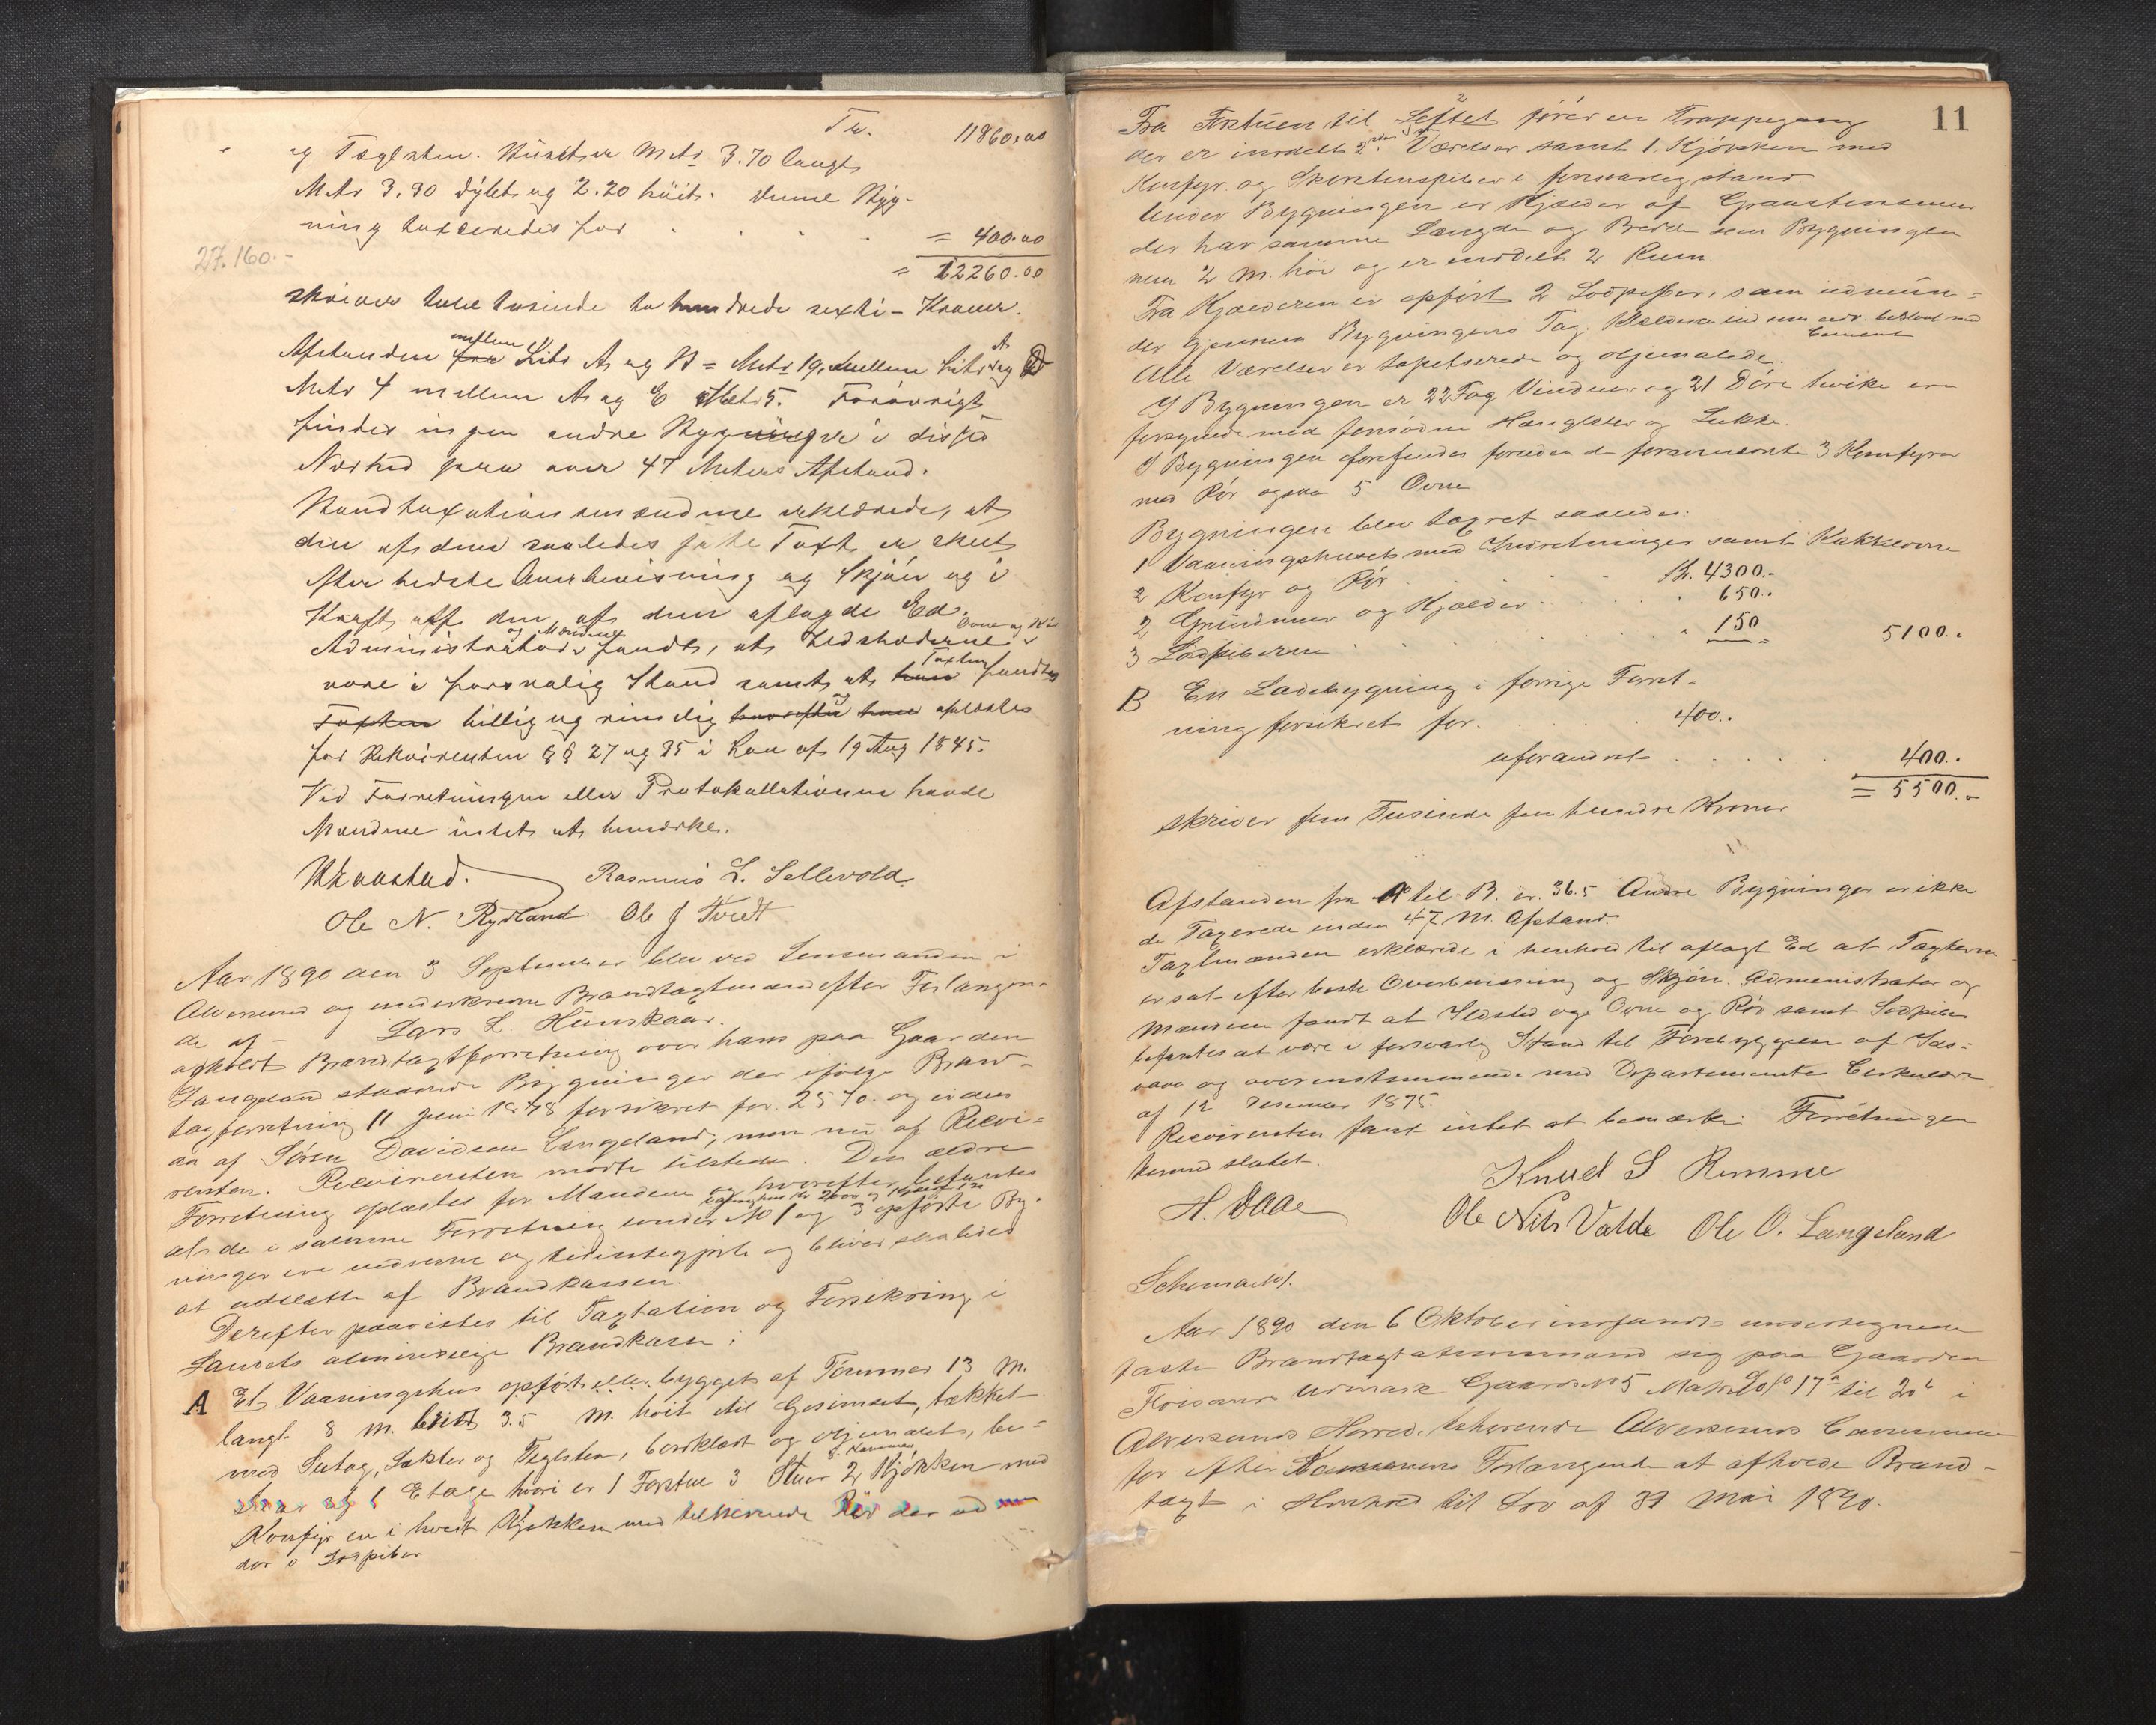 Tr. 11860,00
og Taglsten. Huset er Metr 3.70 langt
Metr 3.30 dybt og 2.20 høit. Denne Byg-
ning taxeredes for = 400.00
27.160.-
= 12260.00
skriver tolv tusinde to hundrede sexti - Kroner.
Afstanden mellem Litr A og B = Metr 19, mellem Litr A og D
Metr 4 mellem A og E Metr 5. Forøvrigt
findes ingen andre Bygninger i disses
Nærhed paa over 47 Meters Afstand.
Brandtaxationsmændene erklærede, at
den af dem saaledes satte Taxt er skeet
efter bedste Overbevisning og Skjøn og i
Kraft af den af dem aflagde Ed.
Administrator og Mændene fandt, at Ildstederne Ovne og Rör
vare i forsvarlig Stand samt at Taxten fandtes
billig og rimelig og oplæstes
for Rekvirenten §§ 27 og 35 i Lov af 19 Aug 1845.
Ved Forretningen eller Protokollationen havde
Mændene intet at bemærke.
Rasmus L. Sellevold.
Ole N. Rydland Ole J Tvedt
Aar 1890 den 3 September blev ved Lensmanden i
Alversund og underskrevne Brandtagtmænd efter Forlangen-
de af - Lars L. Hünskaar.
afholdt Brandtagtforretning over hans paa Gaarden
Langeland staaende Bygninger der ifølge Brand-
tagforretning 11 Juni 1878 forsikret for 2570. og eiedes
da af Søren Davidsen Langeland, men nu af Recvi-
renten. Recvirenten mødte tilstede. Den ældre
Forretning oplæstes for Mændene og hvorefter befantes
at de i samme Forretning under No 1 og 3 opførte Byg-
ninger ere nedrevne og tilintegjorte og bliver saaledes
at udslætte af Brandkassen.
Derefter paavistes til Tagtation og Forsikring i
Landets almindelige Brandkasse:
A Et Vaaningshus opført eller bygget af Tømmer 13 M.
langt 8 M. bredt 3.5 M. høit til Gesimset, tækket
med Sutag, Lækter og Teglsten, bordklædt og oljemalet, be-
staar af 1 Etage hvori er 1 Forstue 3 Stuer 2 Kjøkken med
Konfyr en i hvert Kjøkken med tilhørende Rör der ud mun
der i Lodpiber
11
Fra Forstuen til Loftet fører en Trappegang
der er inddelt 2 Værelser samt 1 Kjøkken med
Konfyr og Skorstenspiber i forsvarlig stand.
Under Bygningen er Kjælder af Graastensmur
der har samme Længde og Brede som Bygningen
men 2 M. høi og er inddelt 2 Rum.
Fra Kjælderen er opført 2 Lodpiber, som udmun-
der gjennem Bygningens Tag.
Alle Værelser er tapetserede og oljemalede.
I Bygningen er 22 Fag Vinduer og 21 Døre hvilke ere
forsynede med fornødne Hængsler og Lukke.
I Bygningen forefindes foruden de forannævnte 3 Komfyrer
med Rör ogsaa 5 Ovne
Bygningen blev taxeret saaledes:
1 Vaaningshuset med Indretninger samt Kakkelovne
2 Konfyr og Rör Kr. 4300.-
2 Grundmur og Kjælder 650.-
3 Lodpiberne 150 5100.-
B En Ladebygning i forrige Forret-
ning forsikret for 400.-
uforandret 400.-
= 5500.-
skriver fem Tusinde fem hundre Kroner
Afstanden fra A til B. er 36.5 Andre Bygninger er ikke
de Taxerede inden 47 M. Afstand.
Taxtmændene erklærede i henhold til aflagt Ed at Taxterne
er sat efter beste Overbevisning og Skjøn. Administrator og
Mændene fandt at Ildsted og Ovne og Rör samt Lodpiber
befantes at være i forsvarlig Stand til Forebyggelse af Ilds-
vaade og overensstemmende med Departementets Cirkulære
af 12 Desember 1875.
Recvirenten fant intet at bemærke. Forretningen
dermed sluttet.
Knud S Remme
H. Daae
Ole Nils Valde Ole O. Langeland
Schema
Aar 1890 den 6 Oktober indfandt undertegnede
faste Brandtagtationsmænd sig paa Gaarden
Gaards No 5 17 til 20 i
Alversunds Herred, tilhørende Alversunds Commune
for efter Kommunens Forlangende at afholde Brand-
tagt i Henhold til Lov af 31 Mai 1890.